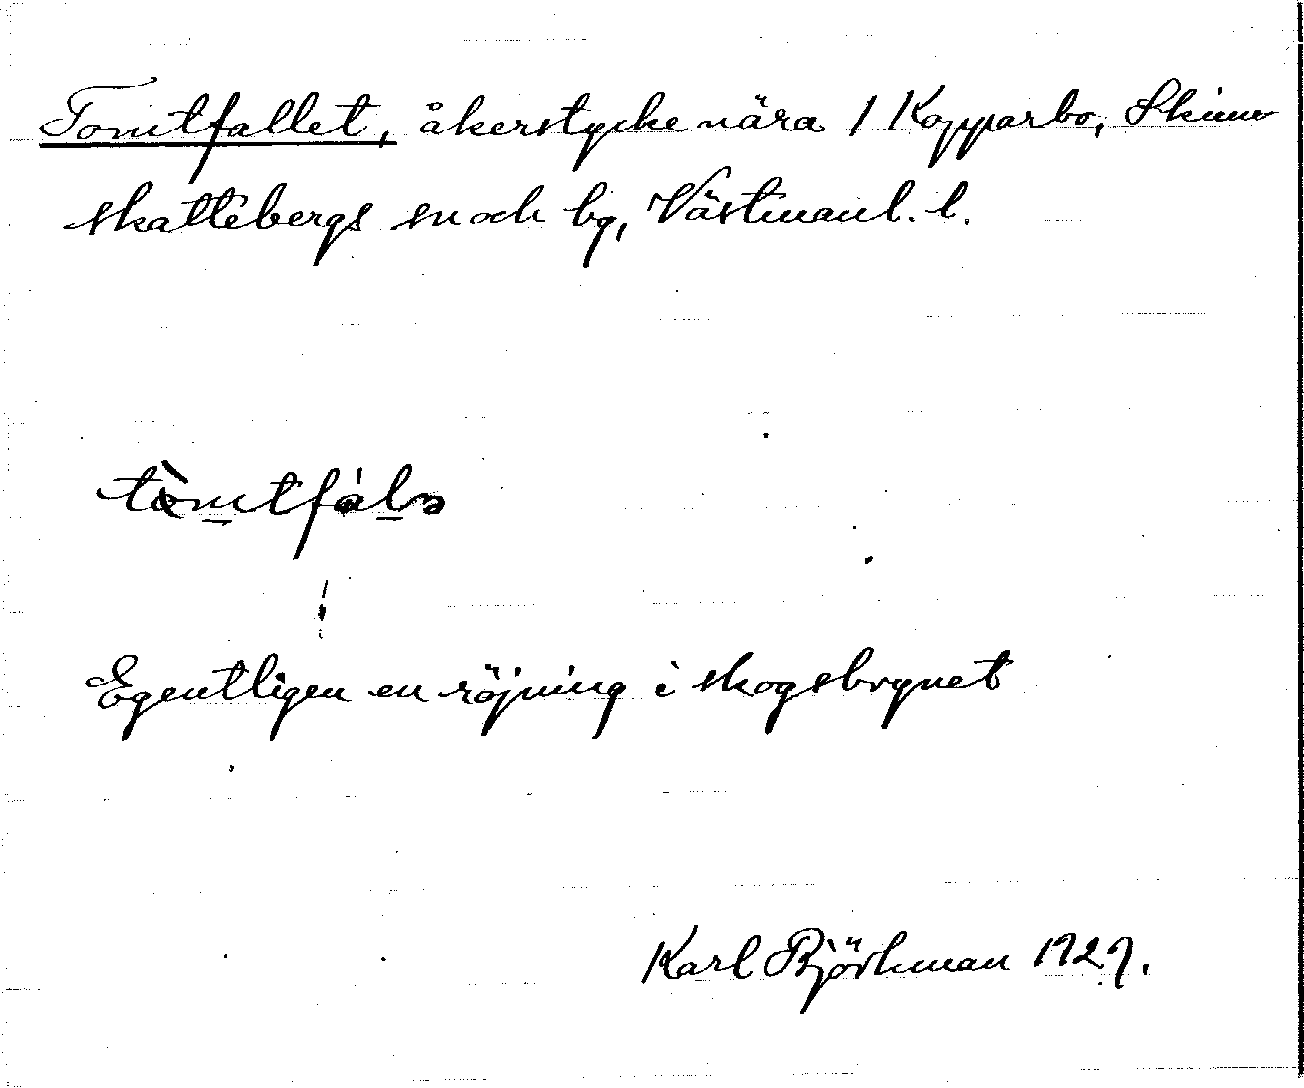 Tomtfallet, åkerstycke nära 1 Kopparbo, Skinn
skattebergs sn och bg, Västmanl. l.
tòmtfálə
Egentligen en röjning i skogsbrynet
Karl Björkman 1929.